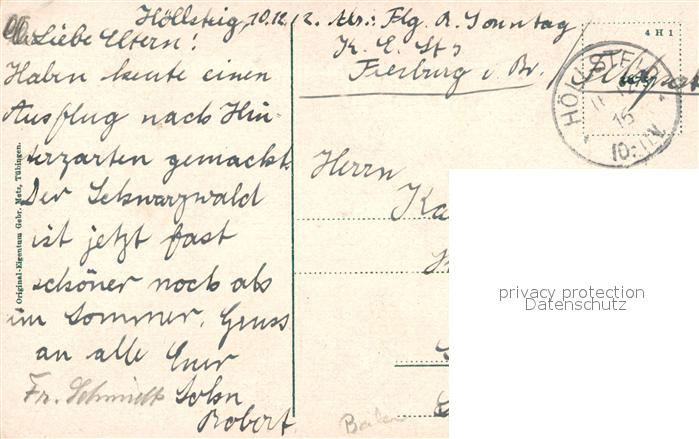 Höllsteig, 10.12.
Abs.: Flg. R. Sonntag
K. E. St 3
Freiburg i. Br.
4 H 1
HÖLLSTEIG
15
10-11V.
Liebe Eltern!
Haben heute einen
Ausflug nach Hin-
terzarten gemacht.
Der Schwarzwald
ist jetzt fast
schöner noch als
im Sommer. Gruss
an alle Euer
Sohn
Robert
Fr. Schmidt
Original-Eigentum Gebr. Metz, Tübingen.
Herrn
privacy protection
Datenschutz
Baden